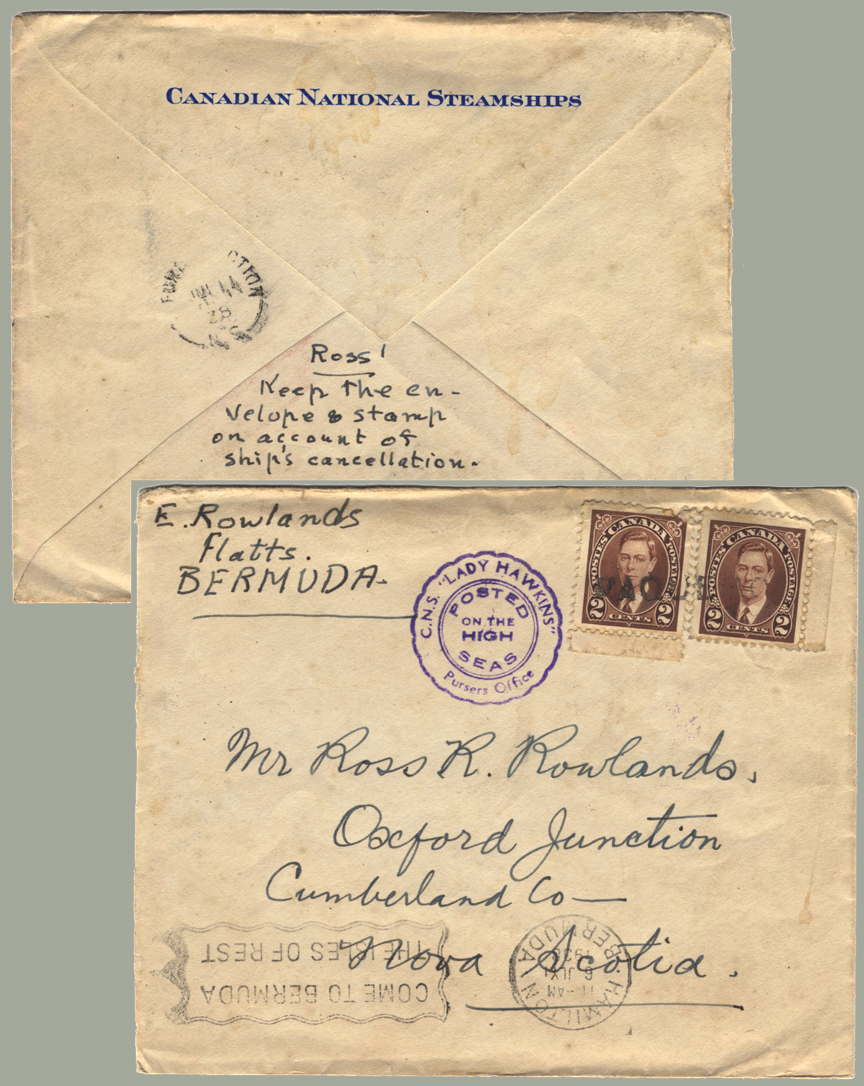 CANADIAN NATIONAL STEAMSHIPS
38
N.S.
Ross!
Keep the en-
velope & stamp
on account of
ship's cancellation.
E. Rowlands
Flatts.
BERMUDA-
C.N.S. "LADY HAWKINS"
POSTED
ON THE
HIGH
SEAS
Pursers Office
POSTES CANADA POSTAGE
2 CENTS 2
POSTES CANADA POSTAGE
2 CENTS 2
Mr Ross R. Rowlands.
Oxford Junction
Cumberland Co—
Nova Scotia.
COME TO BERMUDA
THE ISLES OF REST
HAMILTON
11-AM
BERMUDA